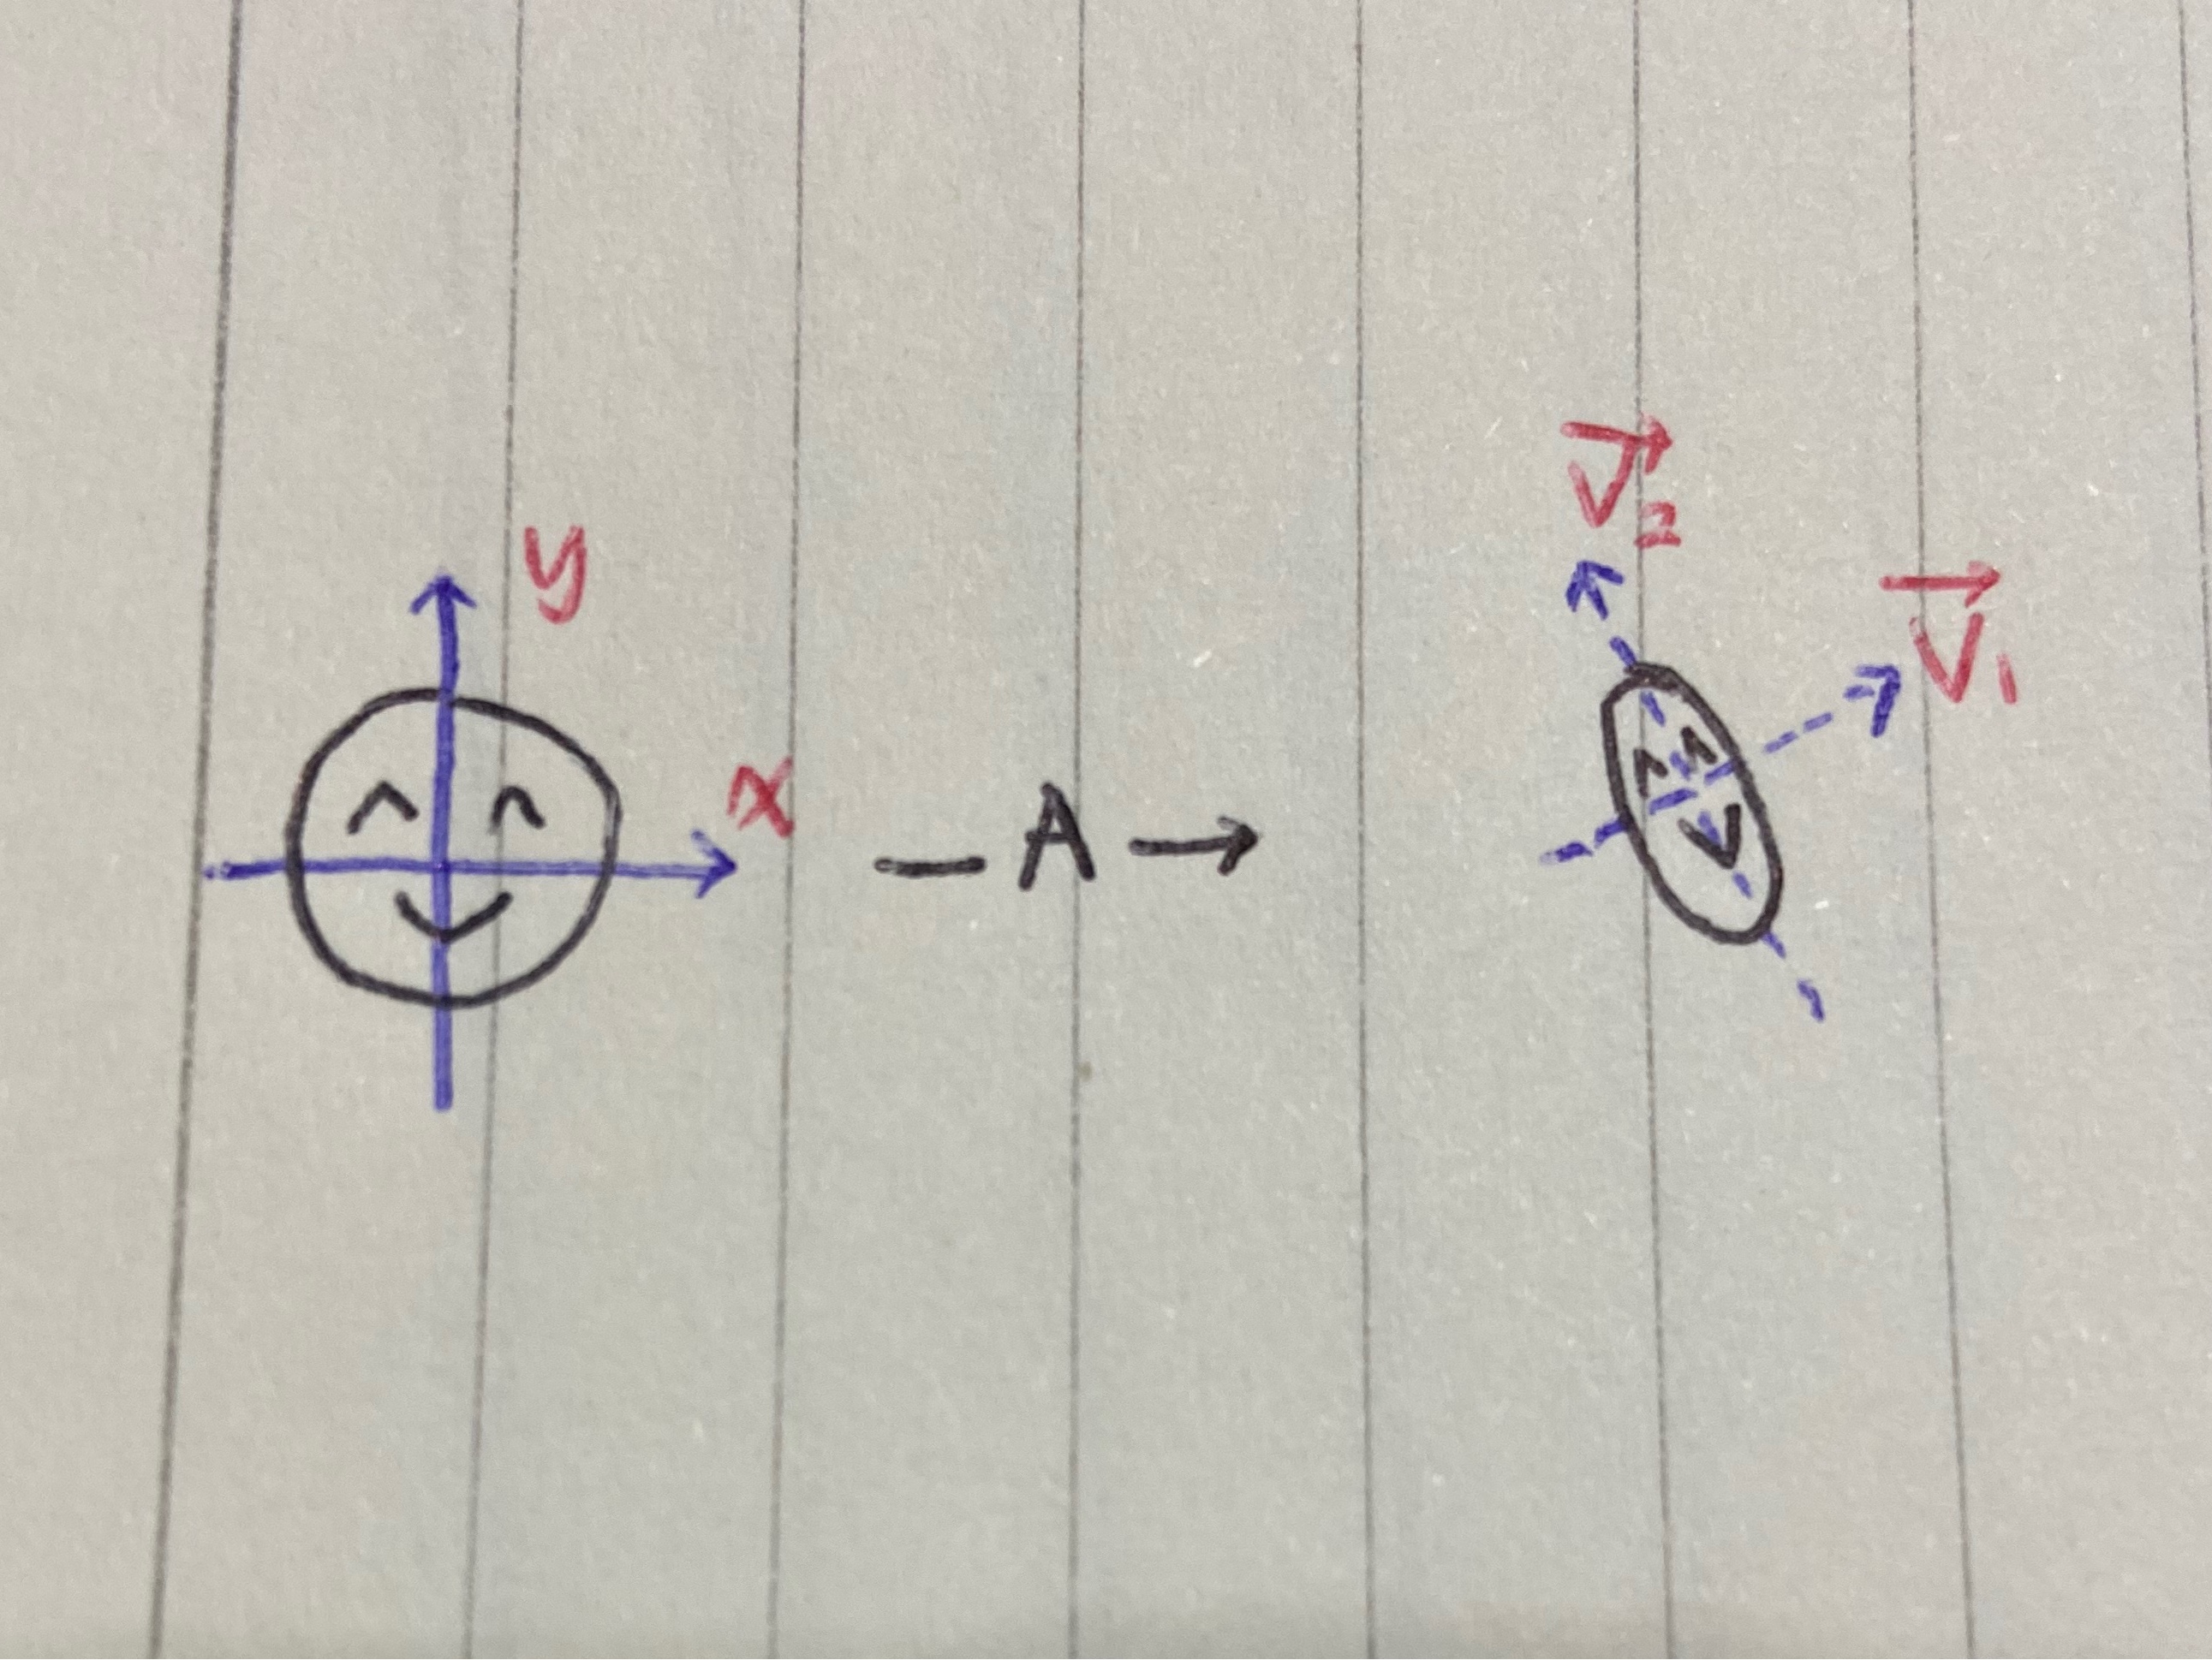 y
x
— A →
V⃗₂
V⃗₁